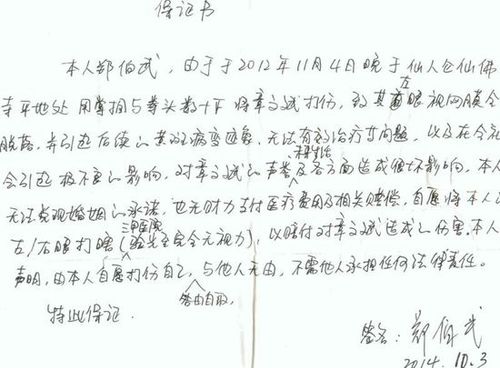 保证书
本人郑伯武，由于于2012年11月4日晚于仙人仑仙佛
寺平地处用掌掴与拳头数十下将章文斌打伤，致其左眼视网膜全
脱落，并引起后续的黄斑病变迹象，无法有效治疗等问题，以及在今
会引起极不良的影响，对章文斌的声誉及各方面造成极坏影响。本人
无法兑现婚姻的承诺，也无财力支付医疗费用及相关赔偿，自愿将本人
左/右眼打瞎（三甲医院 完全无视力），以赔付对章文斌造成的伤害。本人
声明，由本人自愿打伤自己，与他人无由，不需他人承担任何法律责任。
咎由自取。
特此保证。
签名：郑伯武
2014.10.3